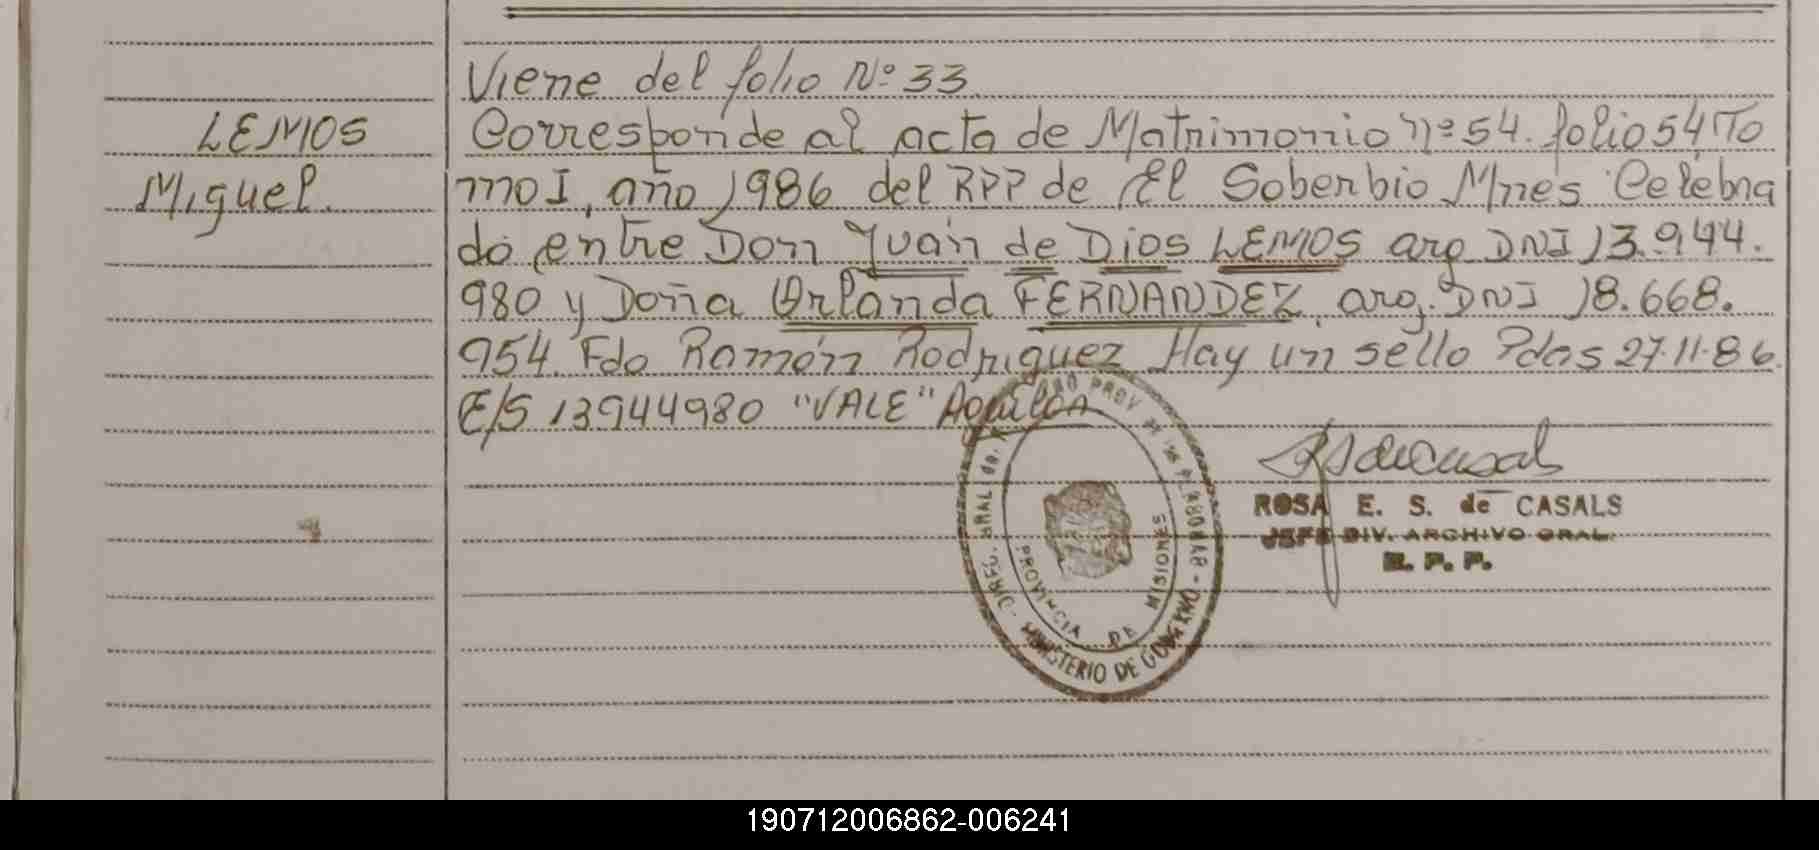 Viene del folio Nº 33
LEMOS
Miguel.
Corresponde al acta de Matrimonio nº 54. folio 54, To
mo I, año 1986 del RPP de El Soberbio Mnes Celebra
do entre Don Juan de Dios LEMOS arg DNI 13.944.
980 y Doña Orlanda FERNANDEZ, arg. DNI 18.668.
954. Fdo Ramón Rodriguez Hay un sello Pdas 27.11.86.
E/S 13944980 "VALE"
ROSA E. S. de CASALS
JEFE DIV. ARCHIVO GRAL.
R. P. P.
PROVINCIA DE MISIONES
MINISTERIO DE GOBIERNO
190712006862-006241